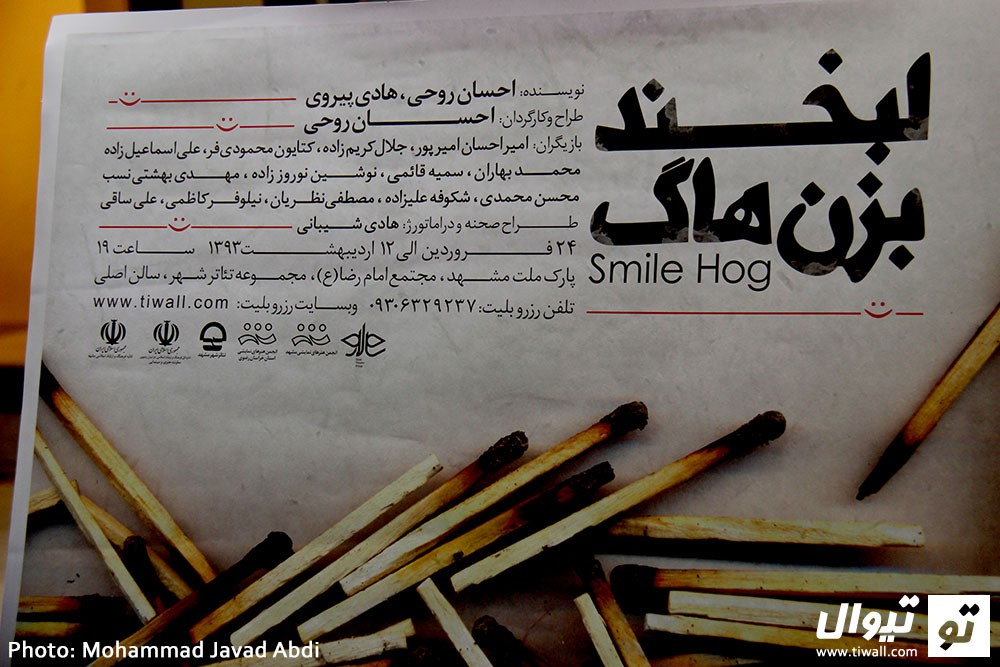 لبخند
بزن هاگ
Smile Hog
نویسنده: احسان روحی، هادی پیروی
طراح وکارگردان: احسان روحی
بازیگران: امیراحسان امیرپور، جلال کریم زاده، کتایون محمودی فر، علی اسماعیل زاده
محمد بهاران، سمیه قائمی، نوشین نوروز زاده، مهدی بهشتی نسب
محسن محمدی، شکوفه علیزاده، مصطفی نظریان، نیلوفر کاظمی، علی ساقی
طراح صحنه و دراماتورژ: هادی شیبانی
۲۴ فروردین الی ۱۲ اردیبهشت ۱۳۹۳ ساعت ۱۹
پارک ملت مشهد، مجتمع امام رضا(ع)، مجموعه تئاتر شهر، سالن اصلی
تلفن رزرو بلیت: ۰۹۳۰۶۳۲۹۲۳۷ وبسایت رزرو بلیت: www.tiwall.com
Photo: Mohammad Javad Abdi
تیوال
www.tiwall.com
تو